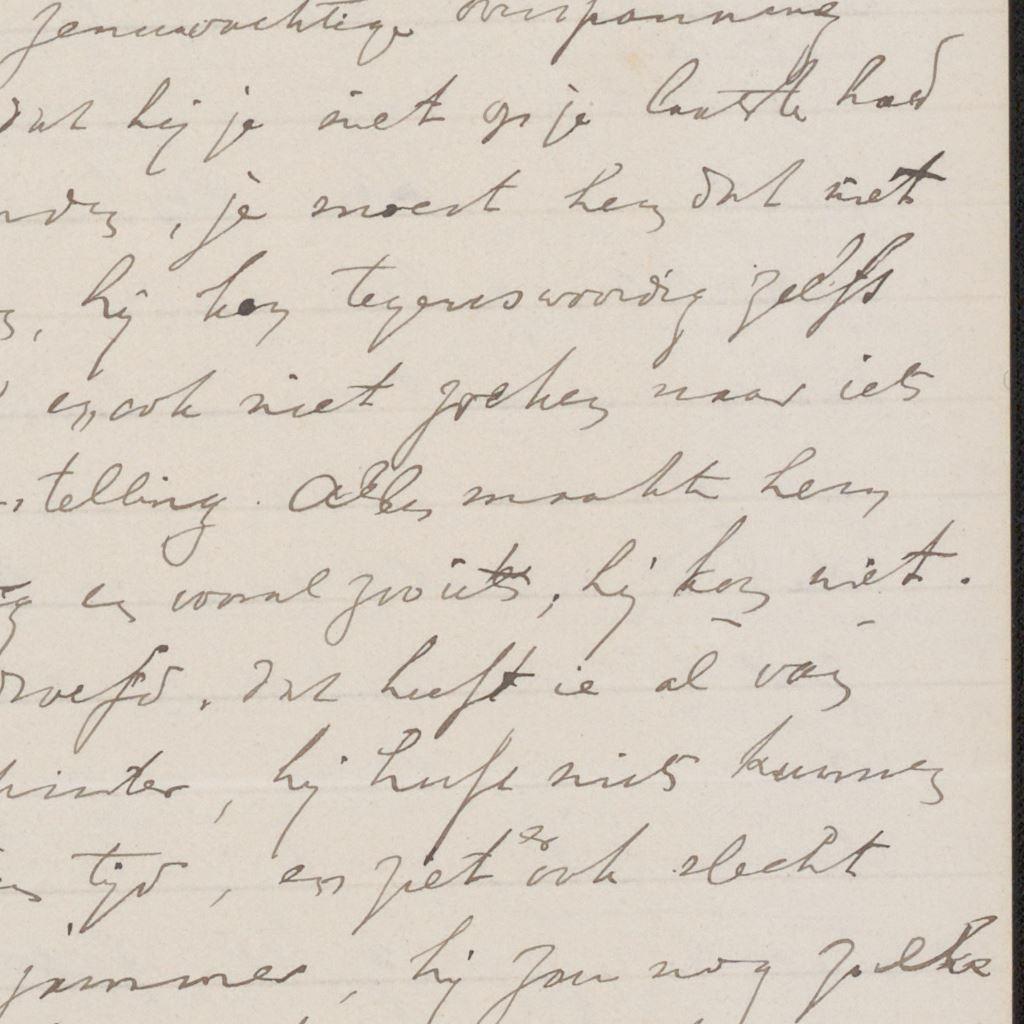 zenuwachtige overspanning
dat hij je niet op je laatste had
, je moest hem dat niet
, hij kan tegenwoordig zelfs
en ook niet zoeken naar iets
stelling. Alles maakte hem
en vooral zooiets, hij kan niet.
droefd. dat heeft ie al van
winter, hij heeft niets kunnen
tijd, en ziet er ook slecht
jammer, hij zou nog zulke